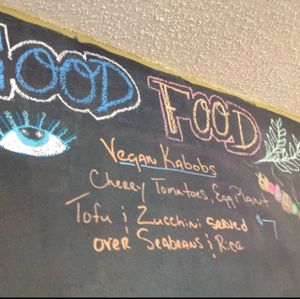 GOOD FOOD
Vegan Kabobs
Cherry Tomatoes, EggPlant
Tofu & Zucchini served
over Seabeans & Rice